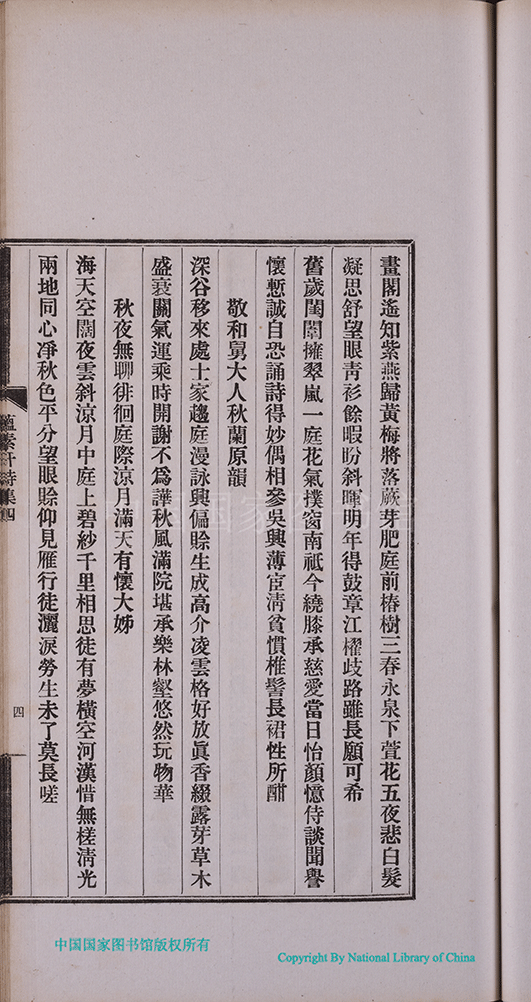 畫閣遙知紫燕歸黃梅將落蕨芽肥庭前椿樹三春永泉下萱花五夜悲白髮
凝思舒望眼靑衫餘暇盼斜暉明年得鼓章江櫂歧路雖長願可希
舊歲閨闈擁翠嵐一庭花氣撲窗南祇今繞膝承慈愛當日怡顏憶侍談聞譽
懷慙誠自恐誦詩得妙偶相參吳興薄宦淸貧慣椎髻長裙性所酣
敬和舅大人秋蘭原韻
深谷移來處士家趨庭漫詠興偏賒生成高介凌雲格好放眞香綴露芽草木
盛衰關氣運乘時開謝不爲譁秋風滿院堪承樂林壑悠然玩物華
秋夜無聊徘徊庭際涼月滿天有懷大姊
海天空闊夜雲斜涼月中庭上碧紗千里相思徒有夢橫空河漢惜無槎淸光
兩地同心凈秋色平分望眼賒仰見雁行徒灑淚勞生未了莫長嗟
蘊素軒詩集四
四
中国国家图书馆版权所有
Copyright By National Library of China